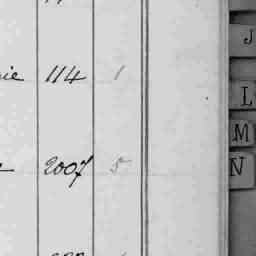 114 1
2007 5
J
L
M
N